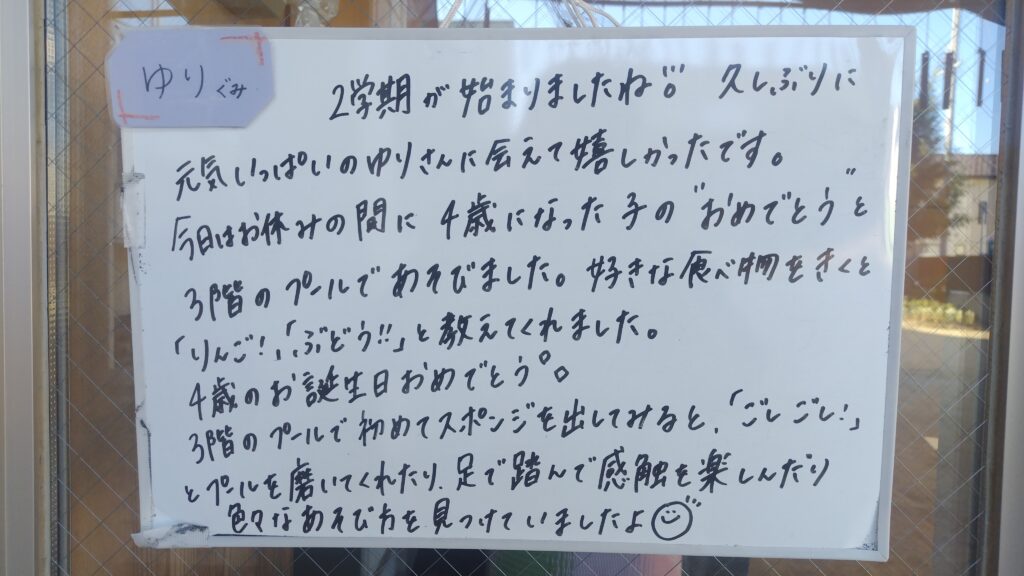 ゆりぐみ
2学期が始まりましたね!! 久しぶりに
元気いっぱいのゆりさんに会えて嬉しかったです。
今日はお休みの間に4歳になった子の"おめでとう"と
3階のプールであそびました。好きな食べ物をきくと
「りんご!」、「ぶどう!!」と教えてくれました。
4歳のお誕生日おめでとう。
3階のプールで初めてスポンジを出してみると、「ごしごし!」
とプールを磨いてくれたり、足で踏んで感触を楽しんだり
色々なあそび方を見つけていましたよ